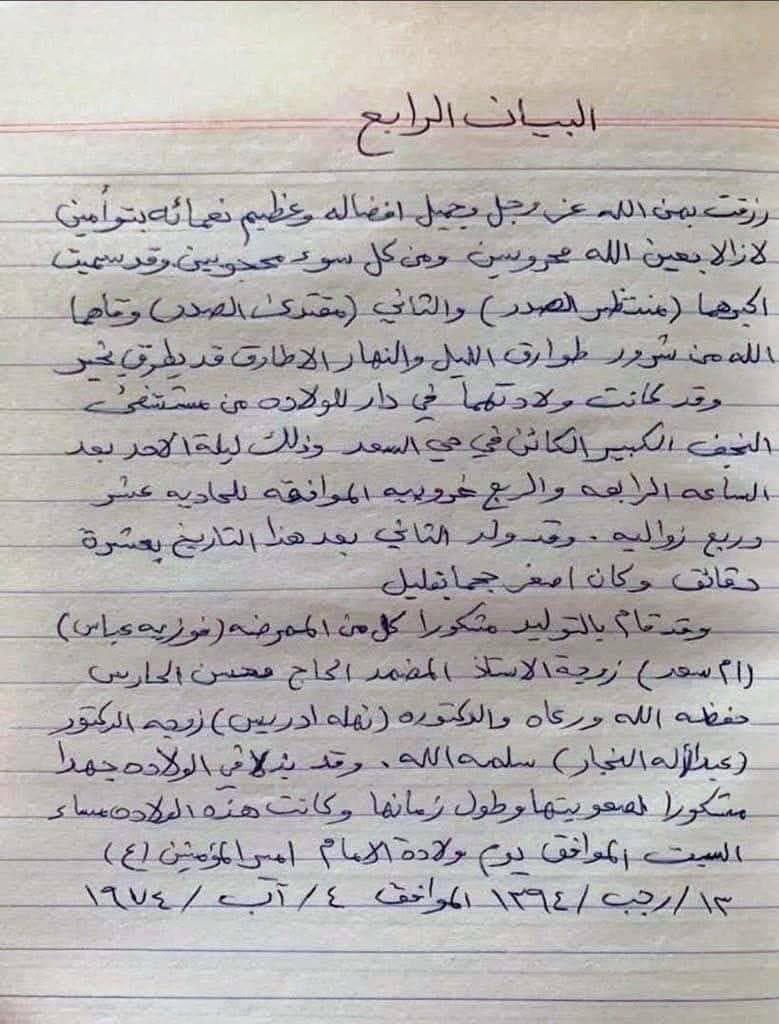 البيان الرابع
رزقت بمن الله عز وجل وجميل افضاله وعظيم نعمائه بتوأمين
لازالا بعين الله محروسين ومن كل سوء محجوبين وقد سميت
اكبرهما (منتظر الصدر) والثاني (مقتدى الصدر) وقاهما
الله من شرور طوارق الليل والنهار الا طارق قد يطرق بخير
وقد كانت ولادتهما في دار للولاده من مستشفى
النجف الكبير الكائن في حي السعد وذلك ليلة الاحد بعد
الساعه الرابعه والربع غروبيه الموافقه للحاديه عشر
وربع زواليه . وقد ولد الثاني بعد هذا التاريخ بعشرة
دقائق وكان اصغر حجما بقليل
وقد قام بالتوليد مشكورا كل من الممرضه (فوزيه عباس)
(ام سعد) زوجة الاستاذ المضمد الحاج محسن الحارس
حفظه الله ورعاه والدكتوره (نهله ادريس) زوجه الدكتور
(عبدالأله النجار) سلمه الله . وقد بذلا في الولاده جهدا
مشكورا لصعوبتها وطول زمانها وكانت هذه الولاده مساء
السبت الموافق يوم ولادة الامام امير المؤمنين (ع)
١٣/رجب/١٣٩٤ الموافق ٤/آب/١٩٧٤